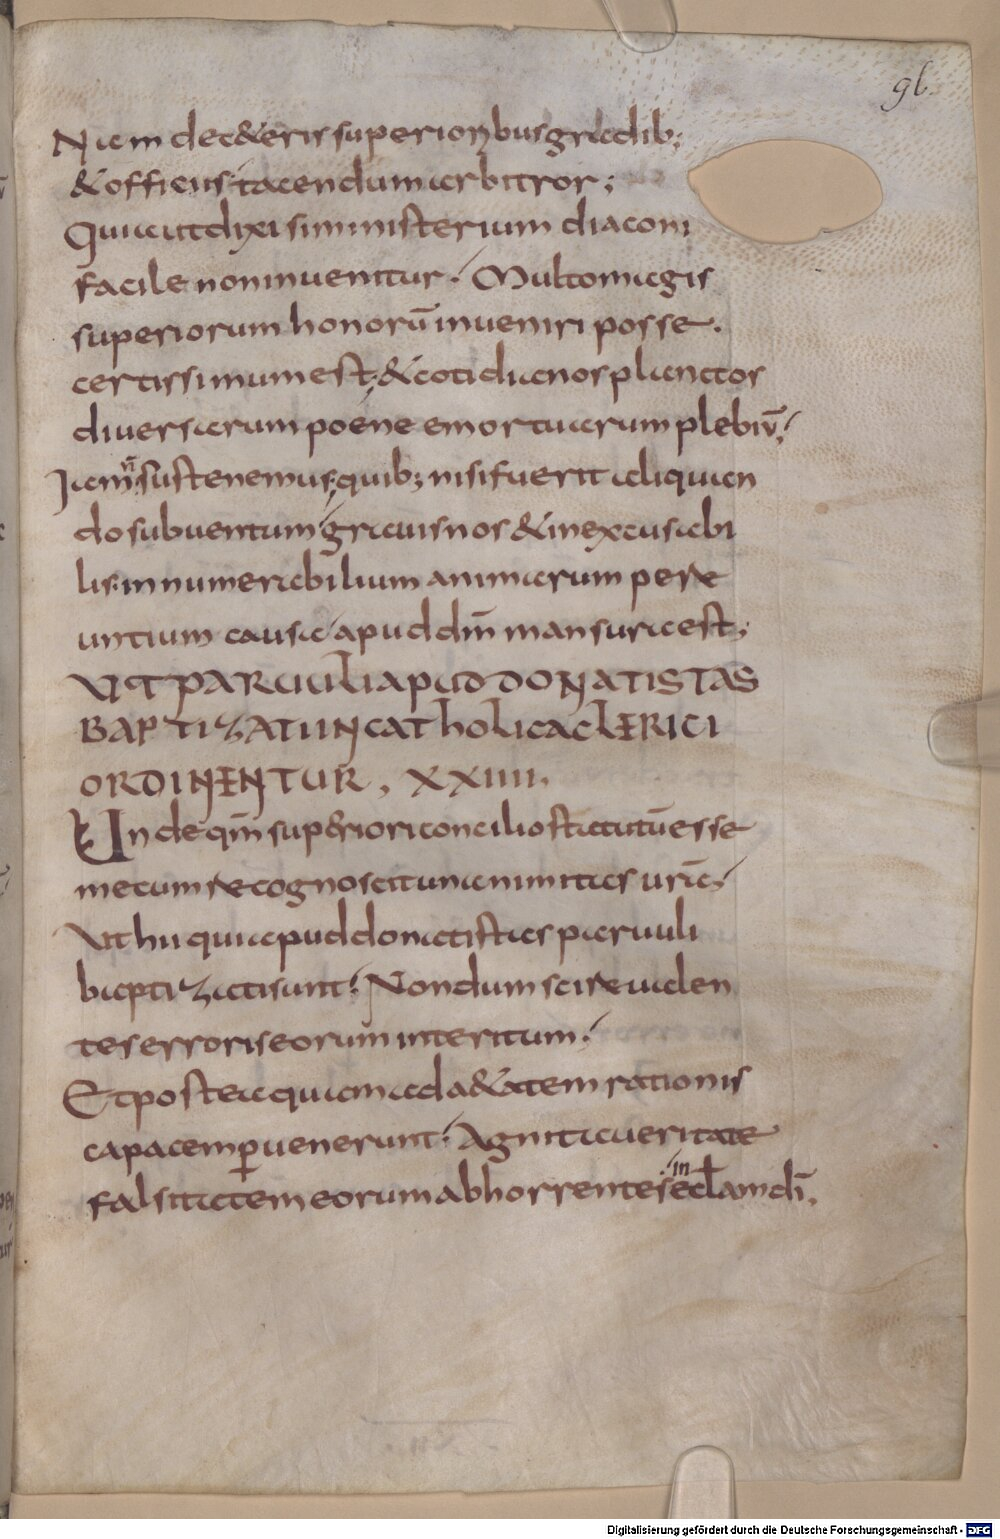 96
Nam de ceteris superioribus gradib;
& officiis tacendum arbitror;
Quia ut dixi si ministerium diaconi
facile non inuenitur. Multo magis
superiorum honorū inueniri posse.
certissimum est; & cotidianos planctos
diuersarum poene emortuarum plebiū;
Iam ñ sustenemus; quib; nisi fuerit aliquan
do subuentum grauis nos & inexcusabi
lis innumerabilium animarum pere
untium causa apud dm̄ mansura est;
UT PARUULI APUD DONATISTAS
BAPTIZATI IN CATHOLICA CLERICI
ORDINENTUR. XXIIII.
Unde qm̄ superiori concilio statutū esse
mecum recognoscit unanimitas urā;
Ut hii qui apud donatistas paruuli
baptizati sunt; Nondum scire uiden
tes erroris eorum interitum.
Et postea quam ad a&atem rationis
capacem puenerunt; Agnita ueritate
falsitatem eorum abhorrentes in eclam dī.
Digitalisierung gefördert durch die Deutsche Forschungsgemeinschaft - DFG